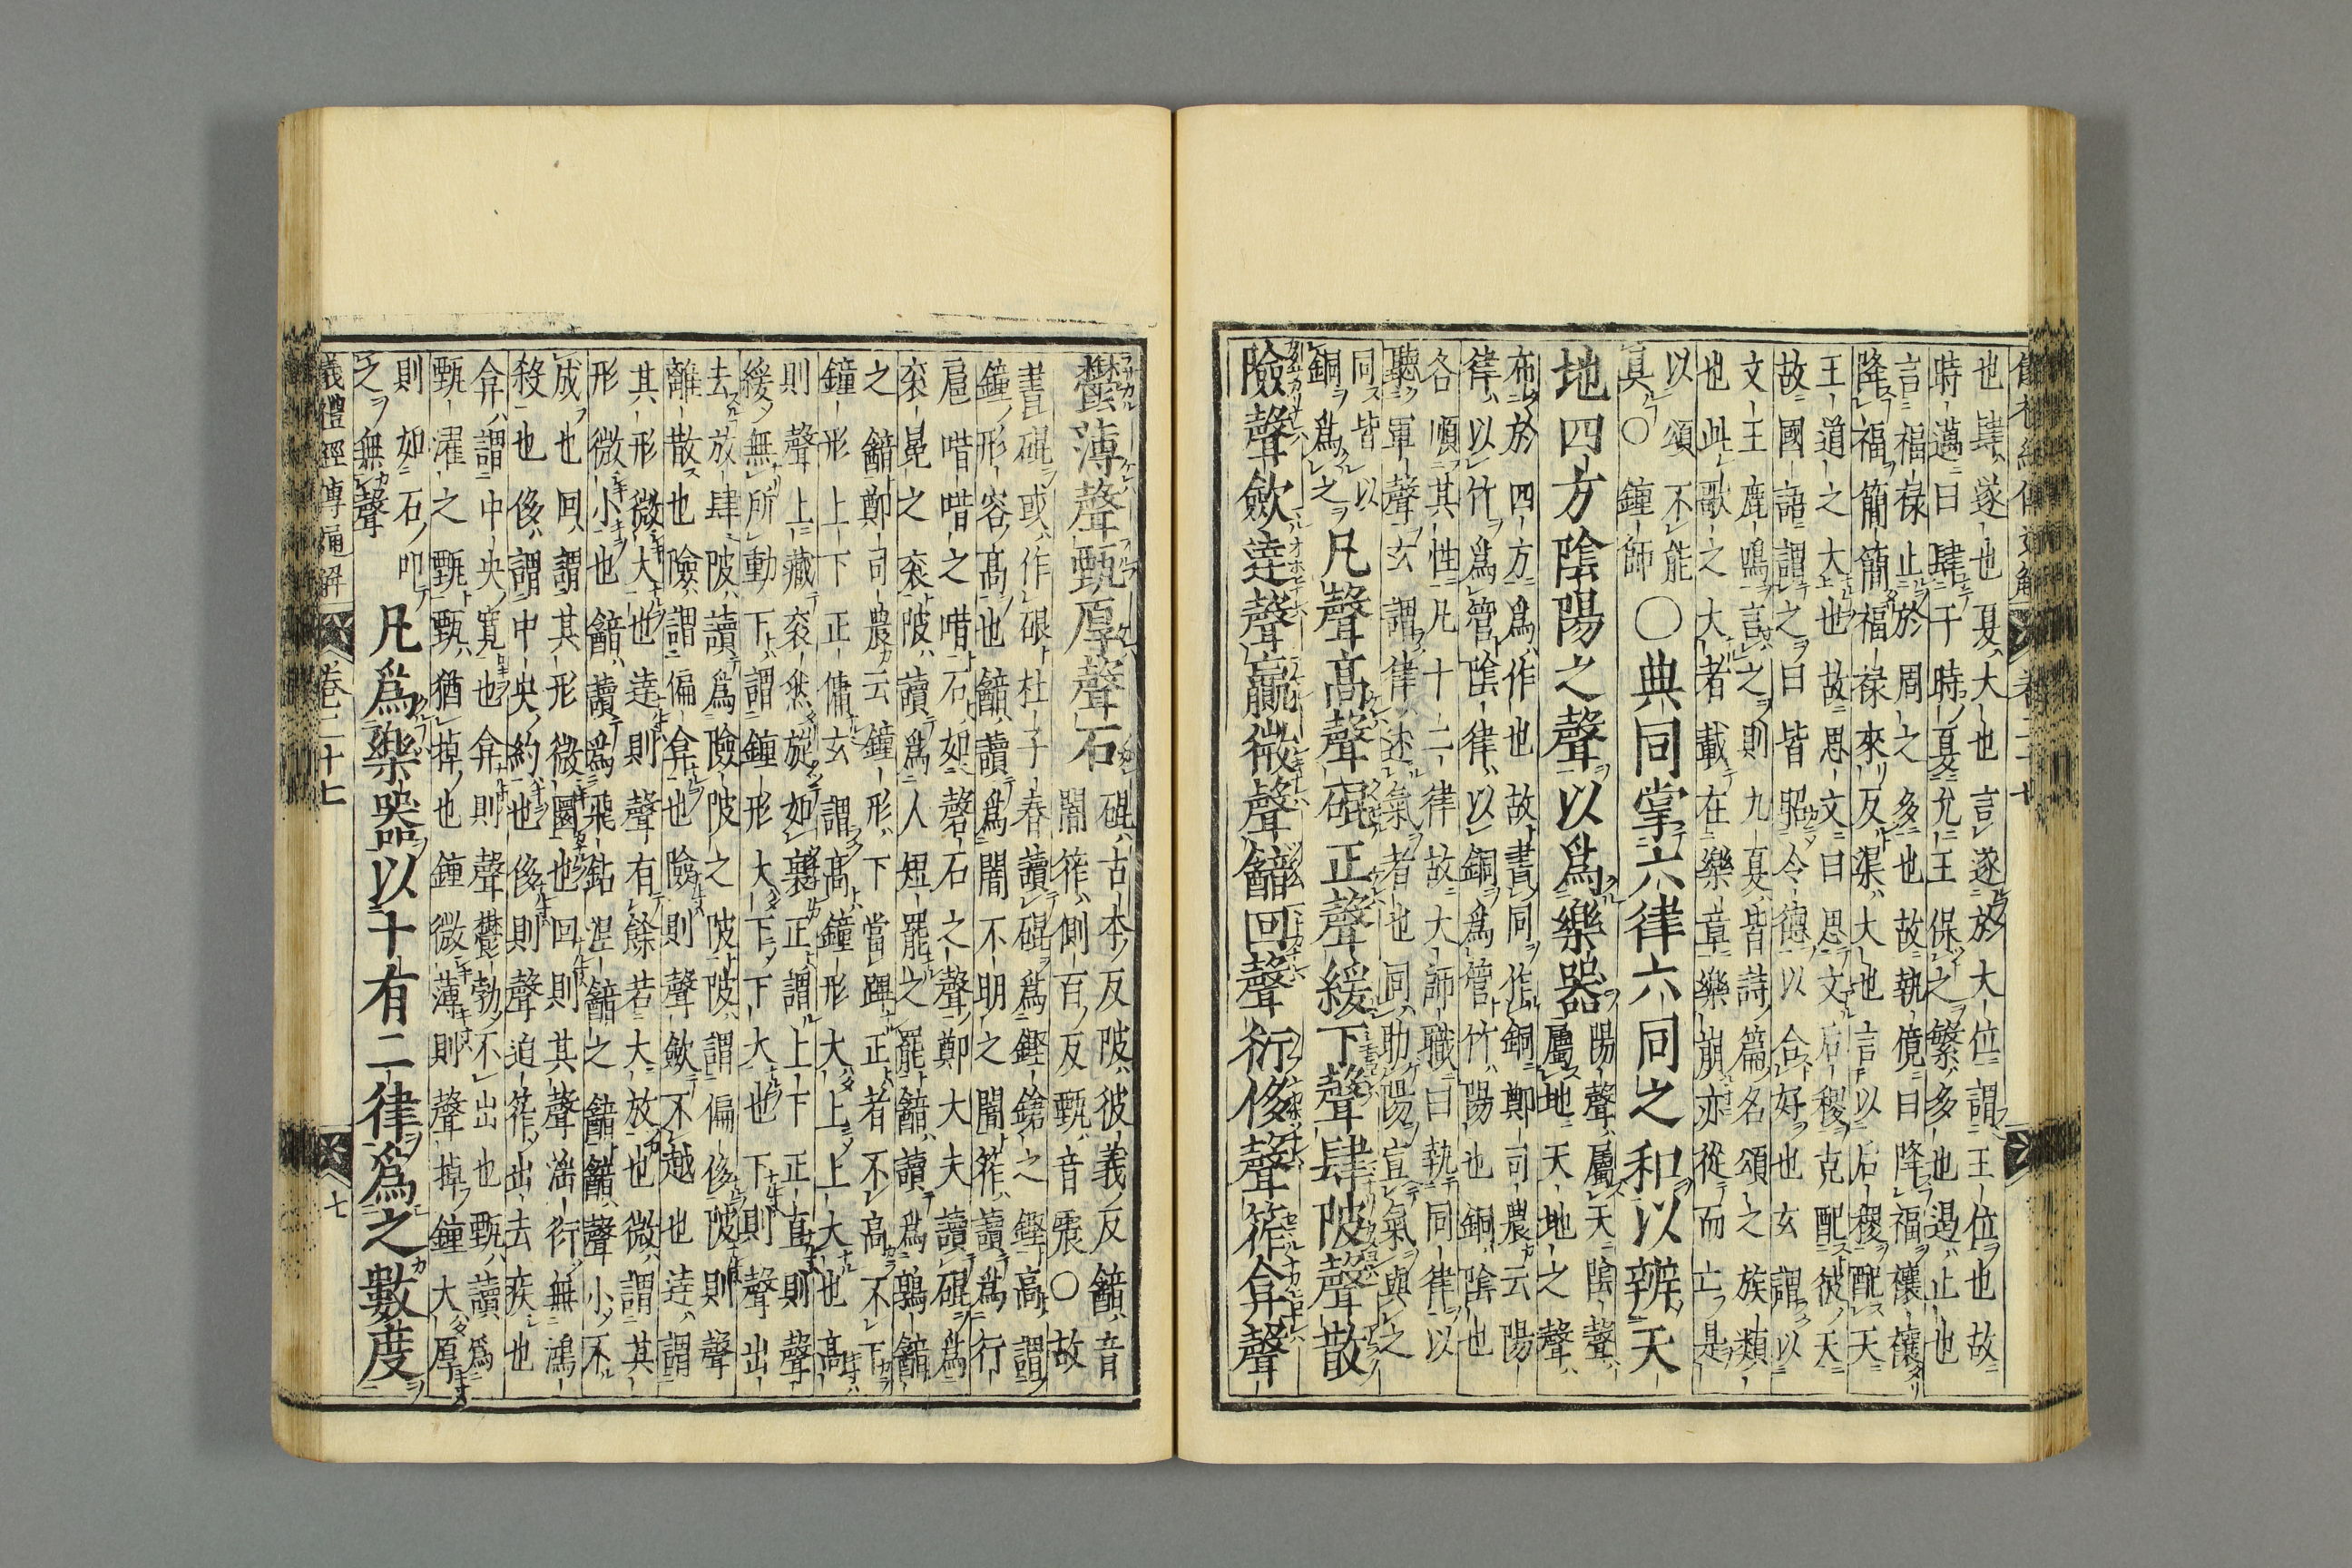 也肆遂也夏大也言遂於大位謂王位也故
時邁曰肆于時夏允王保之繁多也遏止也
言福祿止於周之多也故執儐曰降福穰穰
降福簡簡福祿來反渠大也言以后稷配天
王道之大也故思文曰思文后稷克配彼天
故國語謂之曰皆昭令德以合好也玄謂以
文王鹿鳴言之則九夏皆詩篇名頌之族類
也此歌之大者載在樂章樂崩亦從而亡是
以頌不能
具○鐘師
○典同掌六律六同之和以辨天
地四方陰陽之聲以爲樂器
陽聲屬天陰聲
屬地天地之聲
布於四方爲作也故書同作銅鄭司農云陽
律以竹爲管陰律以銅爲管竹陽也銅陰也
各順其性凡十二律故大師職曰執同律以
聽軍聲玄謂律述氣者也同助陽宣氣與之
同皆以
銅爲之
凡聲高聲硍正聲緩下聲肆陂聲散
險聲歛達聲贏微聲韽回聲衍侈聲筰弇聲
鬱薄聲甄厚聲石
硍古本反陂彼義反韽音
闇筰側百反甄音震○故
書硍或作硍杜子春讀硍爲鏗鎗之鏗高謂
鐘形容高也韽讀爲闇不明之闇筰讀爲行
扈唶唶之唶石如磬石之聲鄭大夫讀硍爲
袞冕之袞陂讀爲人短罷之罷韽讀爲鶉韽
之韽鄭司農云鐘形下當踔正者不高不下
鐘形上下正傭玄謂高鐘形大上上大也高
則聲上藏袞然旋如裏正謂上下正直則聲
緩無所動下謂鐘形大下下大也下則聲出
去放肆陂讀爲險陂之陂陂謂偏侈陂則聲
離散也險謂偏弇也險則聲歛不越也達謂
其形微大也達則聲有餘若大放也微謂其
形微小也韽讀爲飛鉆涅韽之韽韽聲小不
成也回謂其形微圜也回則其聲淫衍無鴻
殺也侈謂中央約也侈則聲迫筰出去疾也
弇謂中央寬也弇則聲鬱勃不出也甄讀爲
甄濯之甄甄猶掉也鐘微薄則聲掉鐘大厚
則如石叩
之無聲
凡爲樂器以十有二律爲之數度
儀禮經傳通解 卷二十七 七